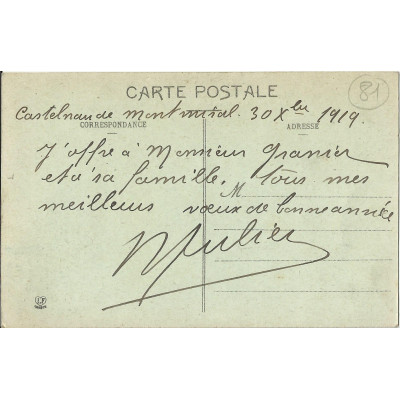 CARTE POSTALE
81
Castelnau de Montmiral. 30 Xbre 1919.
CORRESPONDANCE
ADRESSE
J'offre à Monsieur Granier
et à sa famille, tous mes
M
meilleurs vœux de bonne année